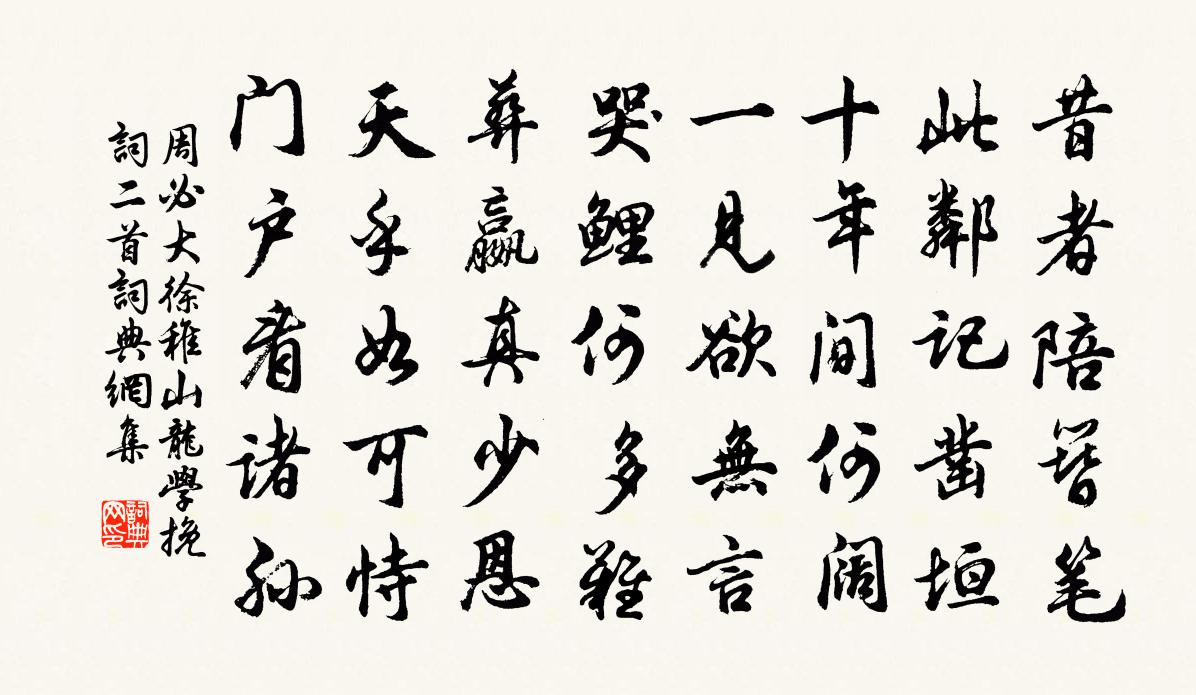 昔者陪簪笔
此鄰记凿垣
十年间何阔
一见欲無言
哭鲤何多難
葬嬴真少恩
天乎如可恃
门户看诸孙
周必大徐稚山龍學挽
詞二首詞典網集
詞典网印